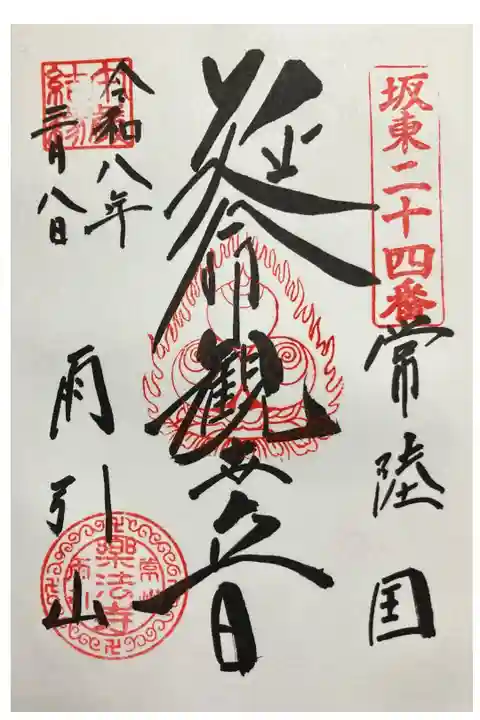 坂東二十四番
常陸国
延命観世音
雨引山
令和八年
三月八日
常州
樂法寺
雨引